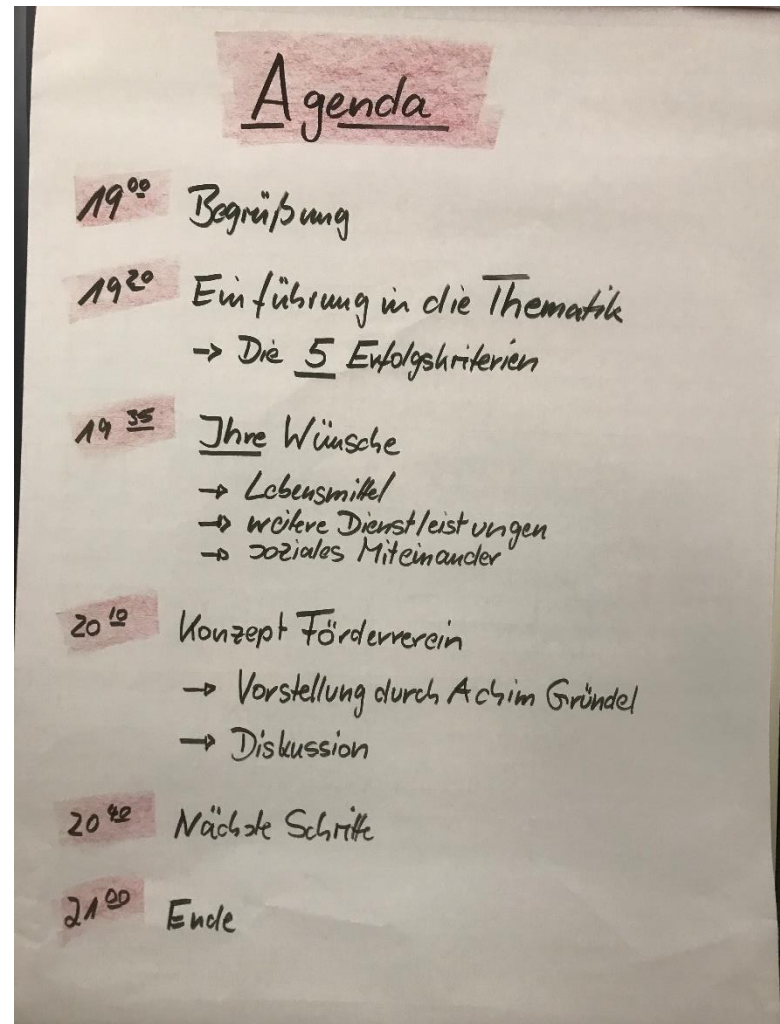 Agenda
19 00 Begrüßung
19 20 Einführung in die Thematik
→ Die 5 Erfolgskriterien
19 35 Ihre Wünsche
→ Lebensmittel
→ weitere Dienstleistungen
→ soziales Miteinander
20 10 Konzept Förderverein
→ Vorstellung durch Achim Gründel
→ Diskussion
20 40 Nächste Schritte
21 00 Ende